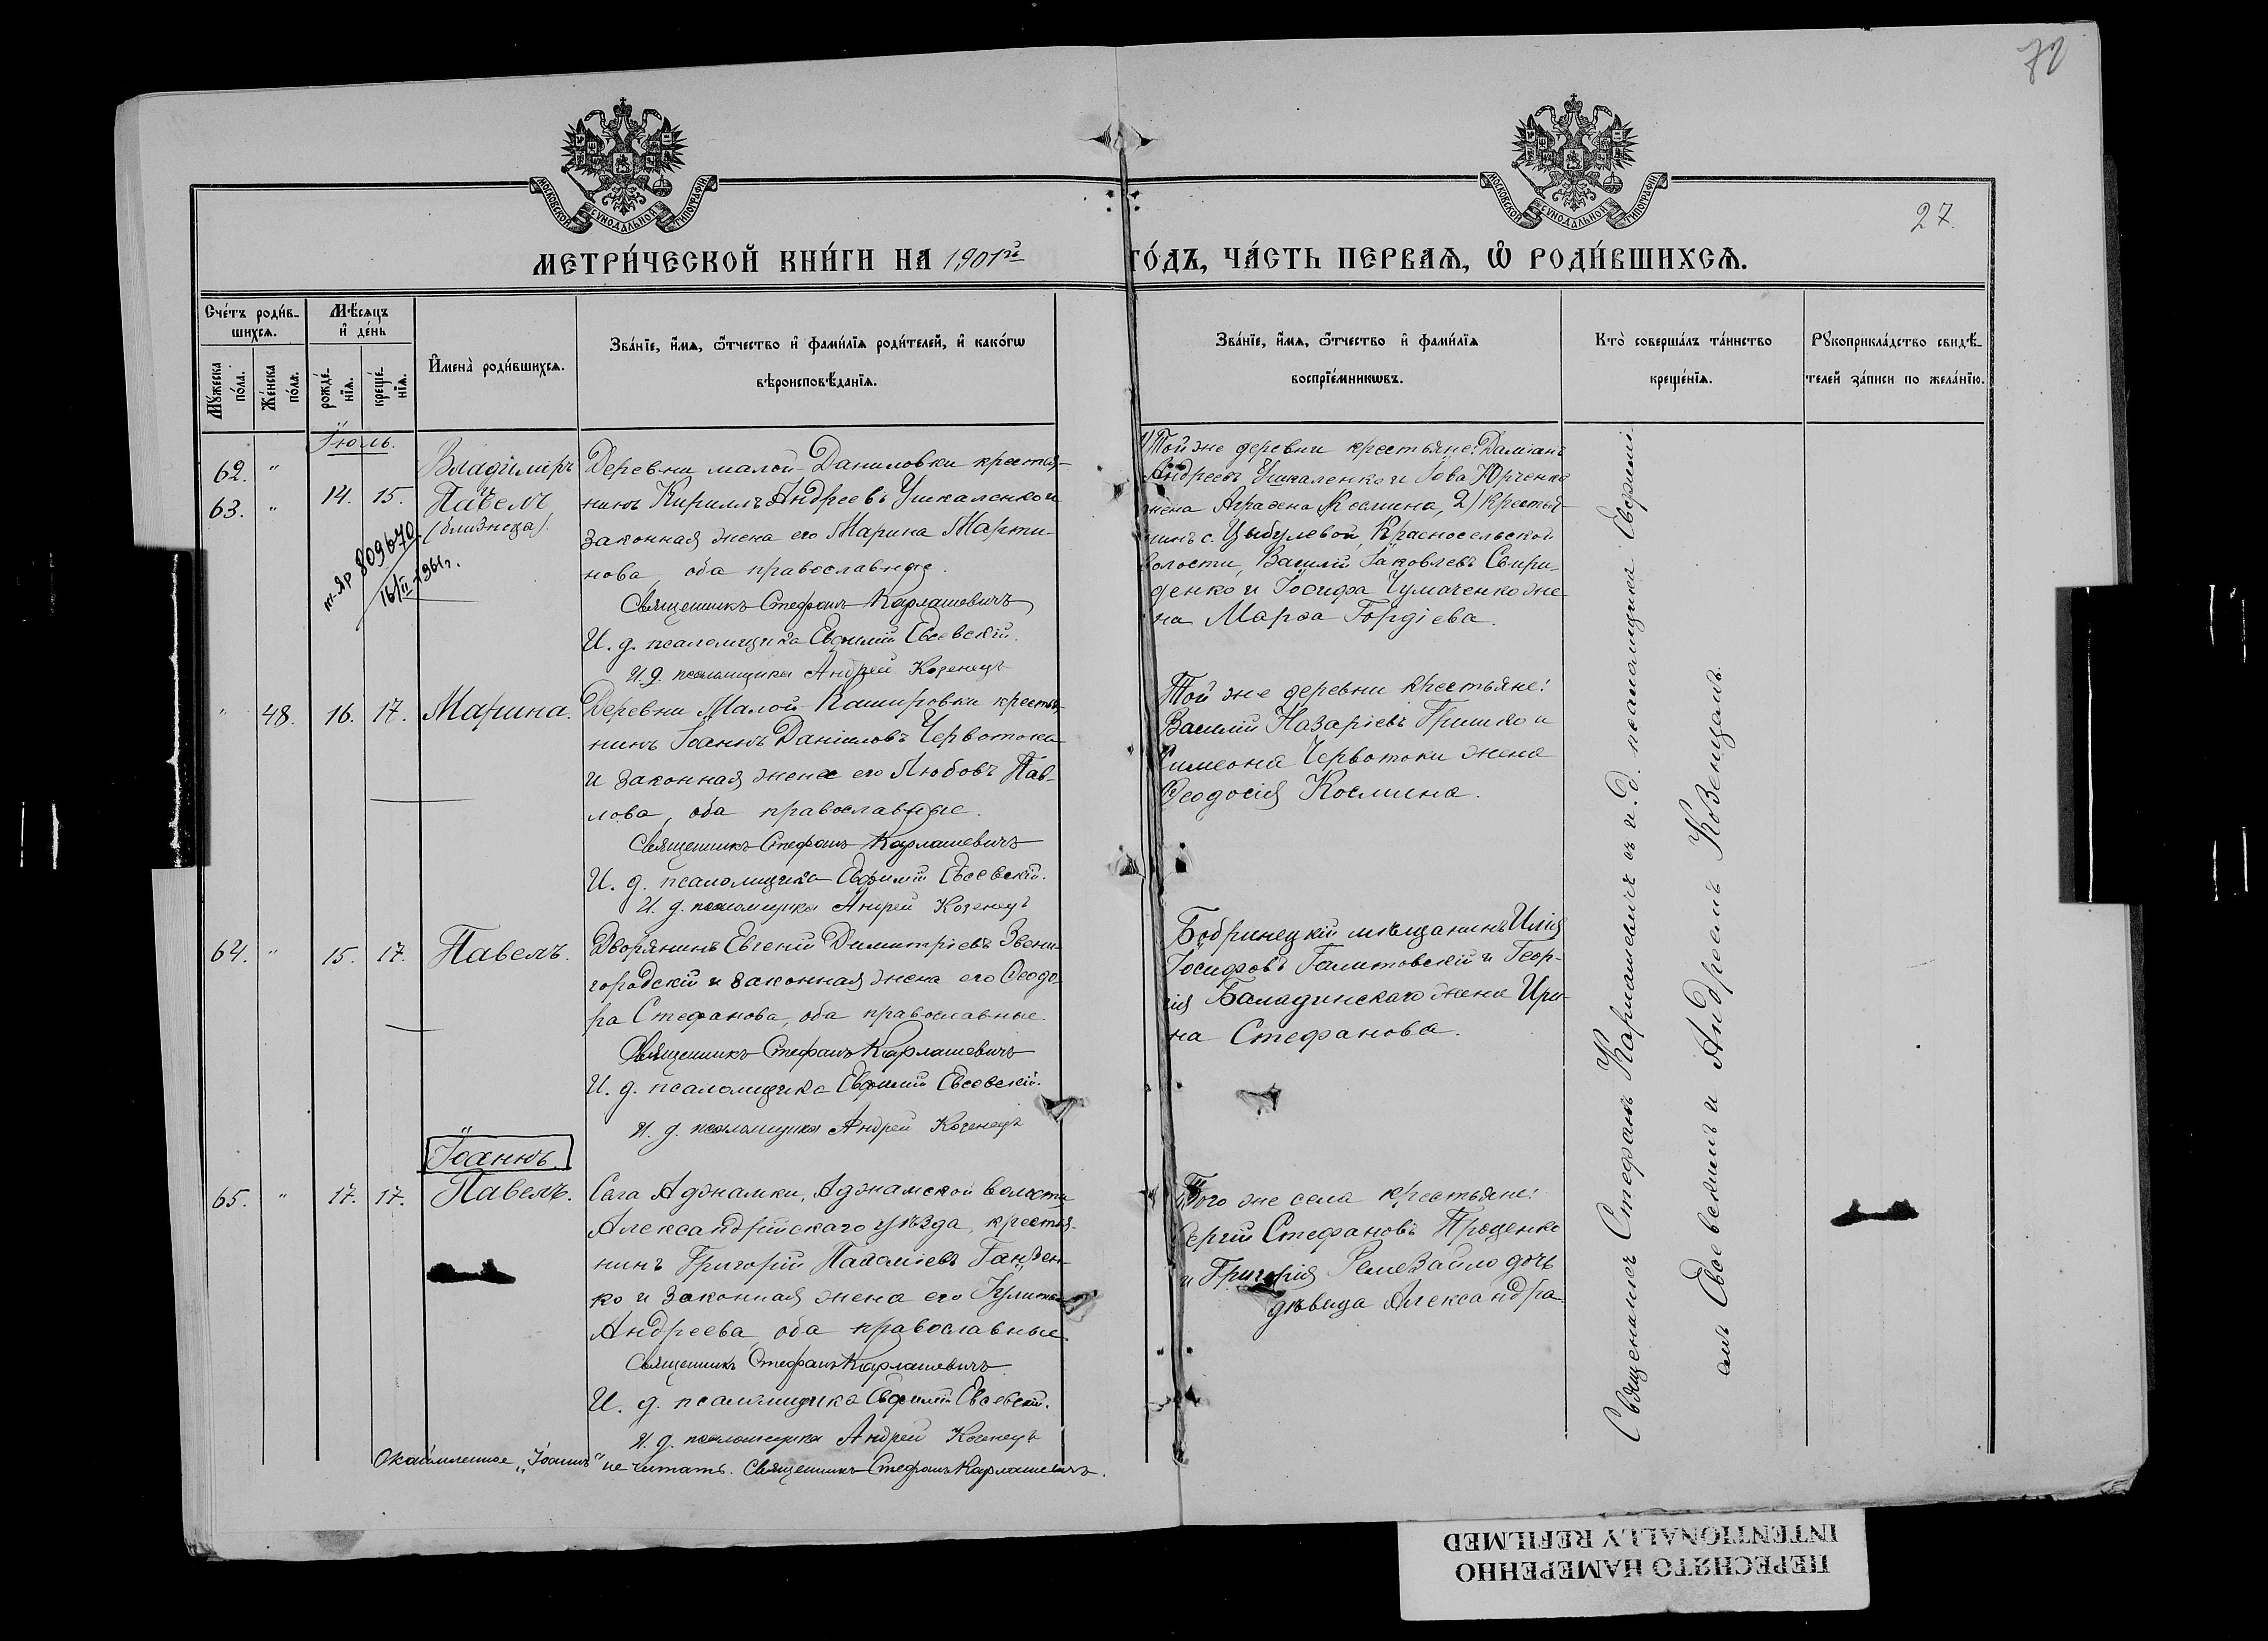 72
27.
МОСКОВСКОЙ СУНОДАЛЬНОЙ ТИПОГРАФІИ
МОСКОВСКОЙ СУНОДАЛЬНОЙ ТИПОГРАФІИ
МЕТРИ́ЧЕСКОЙ КНИ́ГИ НА 1901й
ГО́ДЪ, ЧА́СТЬ ПЕРВАЯ, Ѡ РОДИ́ВШИХСЯ.
Сче́тъ роди́в-
шихся.
Мѣ́сяцъ
и де́нь
Му́жеска
по́ла.
Же́нска
по́ла.
рожде́-
нїя.
креще́-
нїя.
Имена̀ роди́вшихся.
Зва́нїе, и́мя, ѻ҆́тчество и фами́лїя роди́телей, и како́гѡ
вѣроисповѣ́данїя.
Зва́нїе, и́мя, ѻ҆́тчество и фами́лїя
воспрїе́мникѡвъ.
Кто̀ соверша́лъ та́инство
креще́нїя.
Рꙋкоприкла́дство свидѣ́-
телей за́писи по жела́нїю.
Іюль.
62. "
63. "
14. 15.
Владиміръ
Павелъ
(близнецы).
809670
16/II-1961г.
Деревни малой Даниловки крестья-
нинъ Кириллъ Андреевъ Ушкаленко и
законная жена его Марина Марти-
нова, оба православные.
Священникъ Стефанъ Карлашевичъ
И. д. псаломщика Евфимій Евсевскій.
И. д. псаломщика Андрей Козенецъ
1) Той же деревни крестьяне: Даміанъ
Андреевъ Ушкаленко и Іова Юрченко
жена Агрофена Космина, 2) Крестья-
нинъ с. Цыбулевой, Красносельской
волости, Василій Іаковлевъ Свири-
денко и Іосифа Чумаченко же-
на Марѳа Гордіева.
" 48. 16. 17. Марина.
Деревни Малой-Кашировки крестья-
нинъ Іоаннъ Даніиловъ Червотока
и законная жена его Любовь Пав-
лова, оба православные.
Священникъ Стефанъ Карлашевичъ
И. д. псаломщика Евфимій Евсевскій.
И. д. псаломщика Андрей Козенецъ
Той же деревни крестьяне:
Василій Назаріевъ Гришко и
Симеона Червотоки жена
Ѳеодосія Космина.
64. " 15. 17. Павелъ.
Дворянинъ Евгеній Димитріевъ Звени-
городскій и законная жена его Ѳеодо-
ра Стефанова, оба православные.
Священникъ Стефанъ Карлашевичъ
И. д. псаломщика Евфимій Евсевскій.
И. д. псаломщика Андрей Козенецъ
Бобринецкій мѣщанинъ Илія
Іосифовъ Галитовскій и Геор-
гія Баладинскаго жена Ири-
на Стефанова.
Іоаннъ.
65. " 17. 17. Павелъ.
Села Аджамки, Аджамской волости
Александрійскаго уѣзда, крестья-
нинъ Григорій Ганжен-
ко и законная жена его Іулита
Андреева, оба православные.
Священникъ Стефанъ Карлашевичъ
И. д. псаломщика Евфимій Евсевскій.
И. д. псаломщика Андрей Козенецъ
Того же села крестьяне:
Сергій Стефановъ Проценко
и Григорія Ремезайло дочь
дѣвица Александра.
Окаймленное „Іоаннъ" не читать. Священникъ Стефанъ Карлашевичъ.
Священникъ Стефанъ Карлашевичъ съ и. д. псаломщика
Евсевскимъ и Андреемъ Козенцомъ.
ПЕРЕСНЯТО НАМЕРЕННО
INTENTIONALLY REFILMED